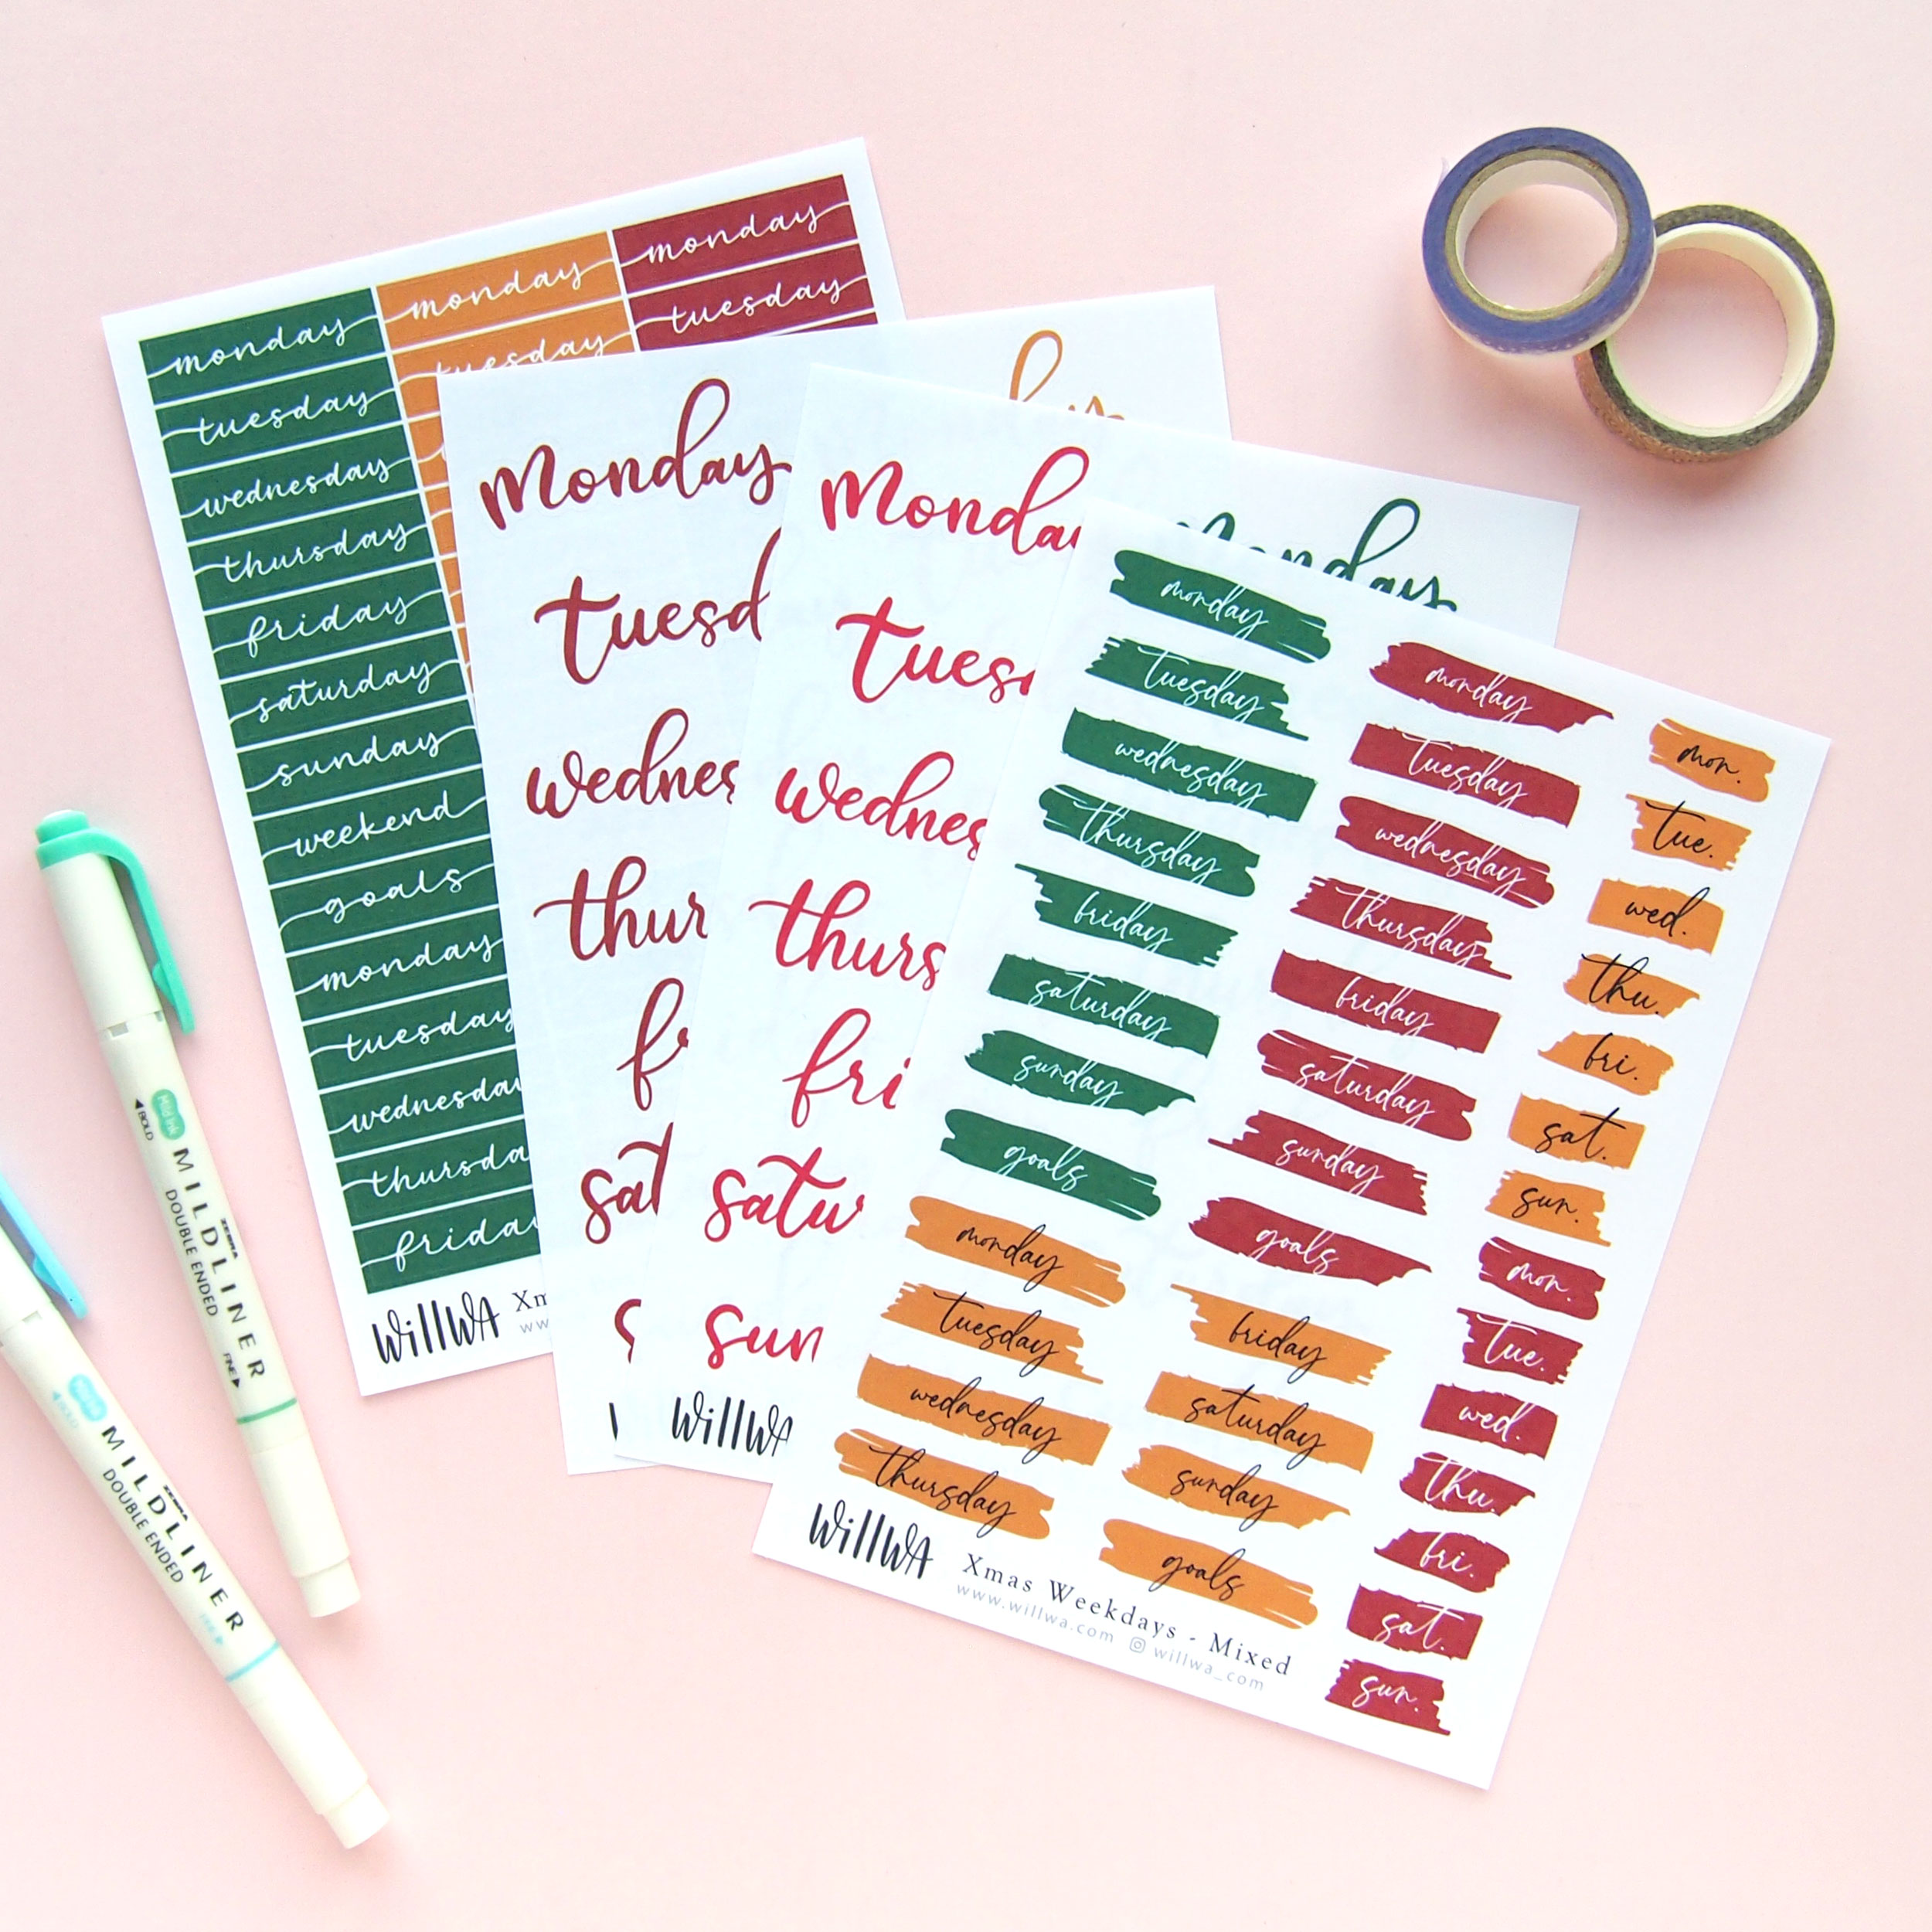 monday
tuesday
wednesday
thursday
friday
saturday
sunday
weekend
goals
monday
tuesday
wednesday
friday
monday
tuesday
monday
tuesday
WillWA
Monday
Monday
monday
tuesday
wednesday
thursday
friday
saturday
sunday
goals
monday
tuesday
wednesday
thursday
monday
tuesday
wednesday
thursday
friday
saturday
sunday
goals
friday
saturday
sunday
goals
mon.
tue.
wed.
thu.
fri.
sat.
sun.
mon.
tue.
wed.
thu.
fri.
sat.
sun.
WillWA
WillWA
Xmas Weekdays - Mixed
www.willwa.com willwa_com
Mild Ink
BOLD
ZEBRA
MILDLINER
DOUBLE ENDED
FINE
ZEBRA
MILDLINER
DOUBLE ENDED